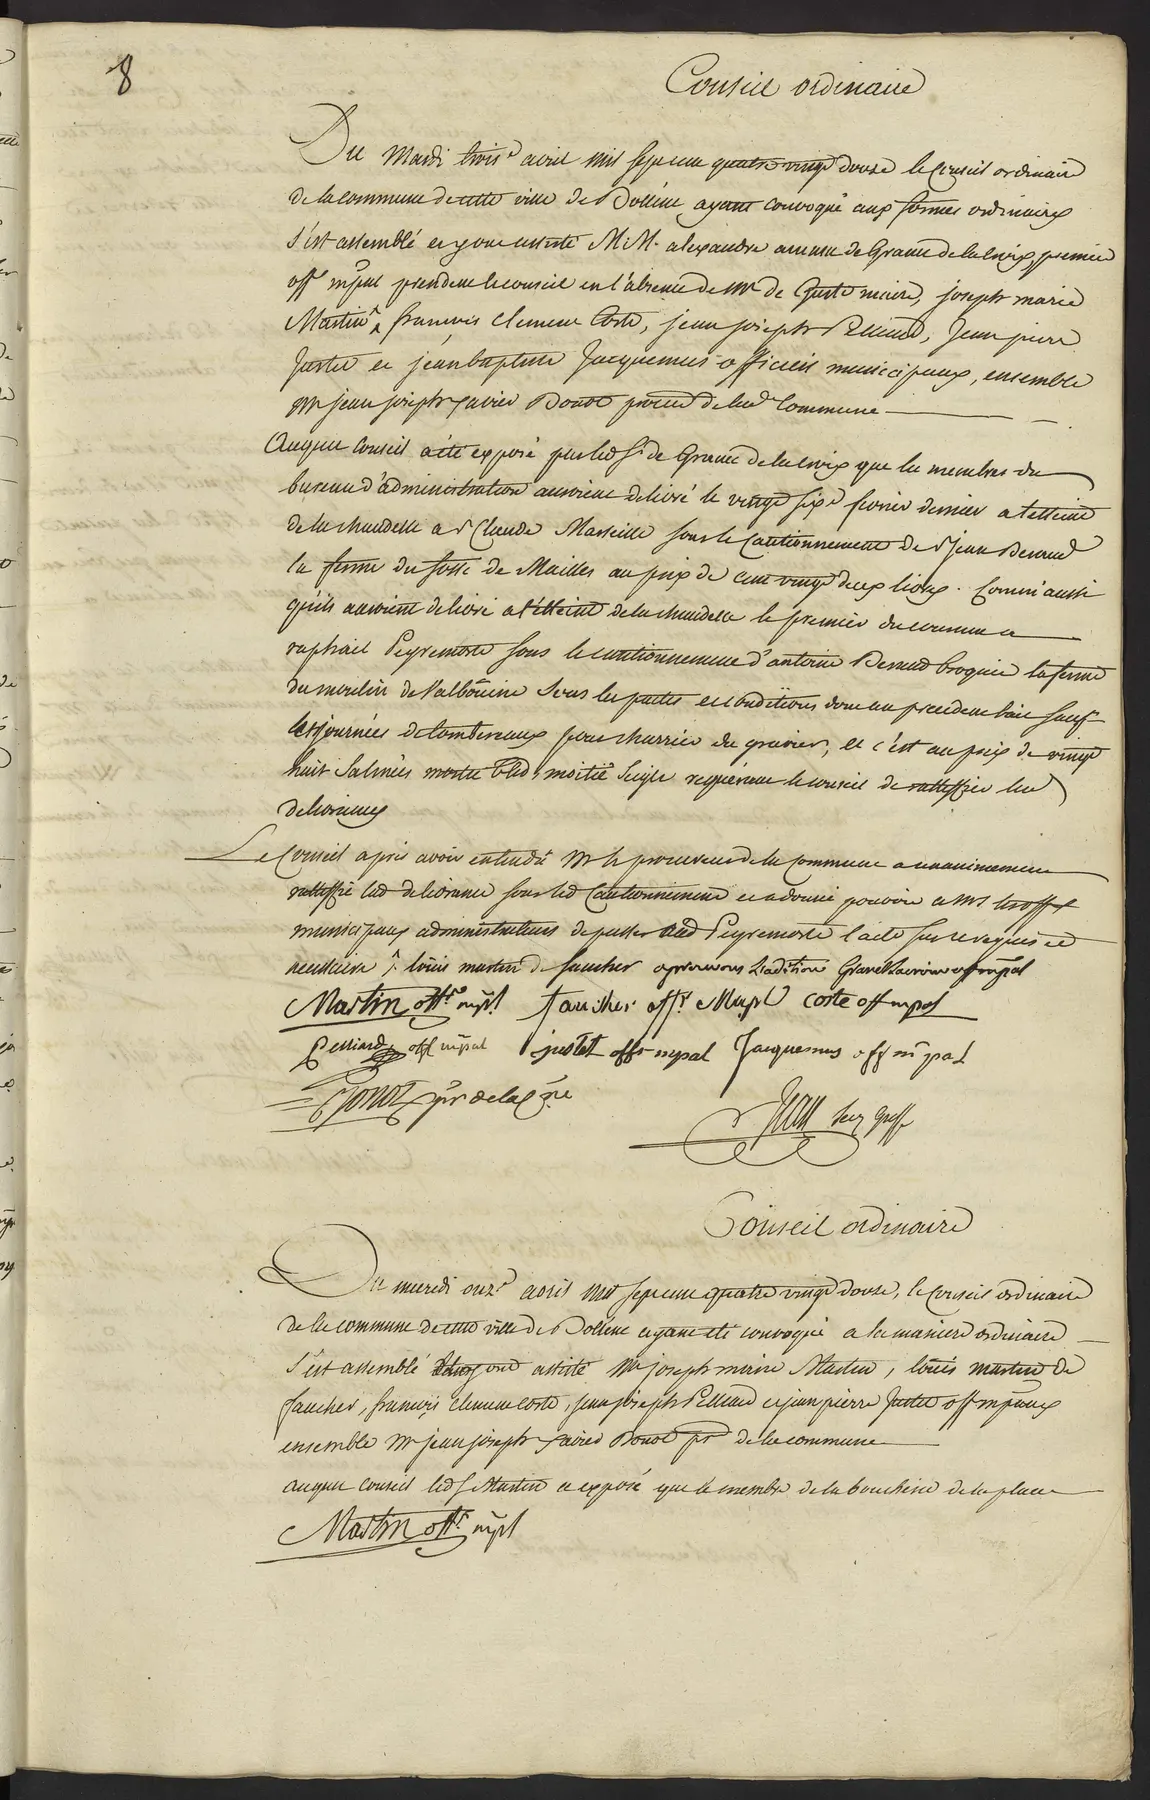 8
Conseil ordinaire
Du Mardi trois.e avril mil sept cent quatre vingt douse le Conseil ordinaire
de la commune de cette ville de Bollène ayant convoqué aux formes ordinaires
s'est assemblé et y ont assisté M.M. alexandre de Gravet de la croix, premier
off. mpal president le conseil en l'absence de Mr de Guste maire, joseph marie
Martin ^ francois Clement Coste, jean joseph Pelliard, Jean pierre
Justet et jean baptiste Jacquemus officiers municipaux, ensemble
Mr jean joseph xavier Bonot procur de lad. Commune
Auquel Conseil a été exposé par led Sr de Gravet de la croix que les membres du
bureau d'administration auroient delivré le vingt six.e fevrier dernier a l'etteinte
de la chandelle a Sr Claude Marseille sous le Cautionnement de Sr Jean Beraud
la ferme du fossé de Mailles au prix de cent vingt deux livres. Comm'aussi
qu'ils auroient delivré a l'etteinte de la chandelle le premier du courant a
raphael Peyremorte sous le cautionnement d'antoine Beraud broquier la ferme
du moulin de l'albouine sous les pactes et conditions dont au precedent bail sauf
les journées de tombereaux pour charrier du gravier, et c'est au prix de vingt
huit salmées mouture bled, moitié seigle requérant le conseil de rattiffier lesd
delivrances
Le Conseil après avoir entendu Mr le procureur de la commune a unanimement
rattiffié lesd delivrances sous lesd Cautionnement et a donné pouvoir a Mrs les offrs
municipaux administrateurs de passer aud Peyremorte l'acte sur ce requis et
necessaire ^ louis martin de faucher aprouvons l'adition Gravet Lacroix off mpal
Martin offr. mpl faucher offr. Mupl coste off mpal
Pelliard off mpal justet offr mpal Jacquemus off mpal
Bonot pr de la cne
Jean secr greff
Conseil ordinaire
Du mecredi onz.e avril mil sept cent quatre vingt douse, le Conseil ordinaire
de la commune de cette ville de Bollène ayant été convoqué a la maniere ordinaire
s'est assemblé et y ont assisté Mr joseph marie Martin, louis martin de
faucher, francois clement coste, jean joseph Pelliard et jean pierre Justet off mpaux
ensemble Mr jean joseph xavier Bonot pr de la commune
auquel Conseil led Sr Martin a exposé que le membre de la boucherie de la place
Martin offr. mpl